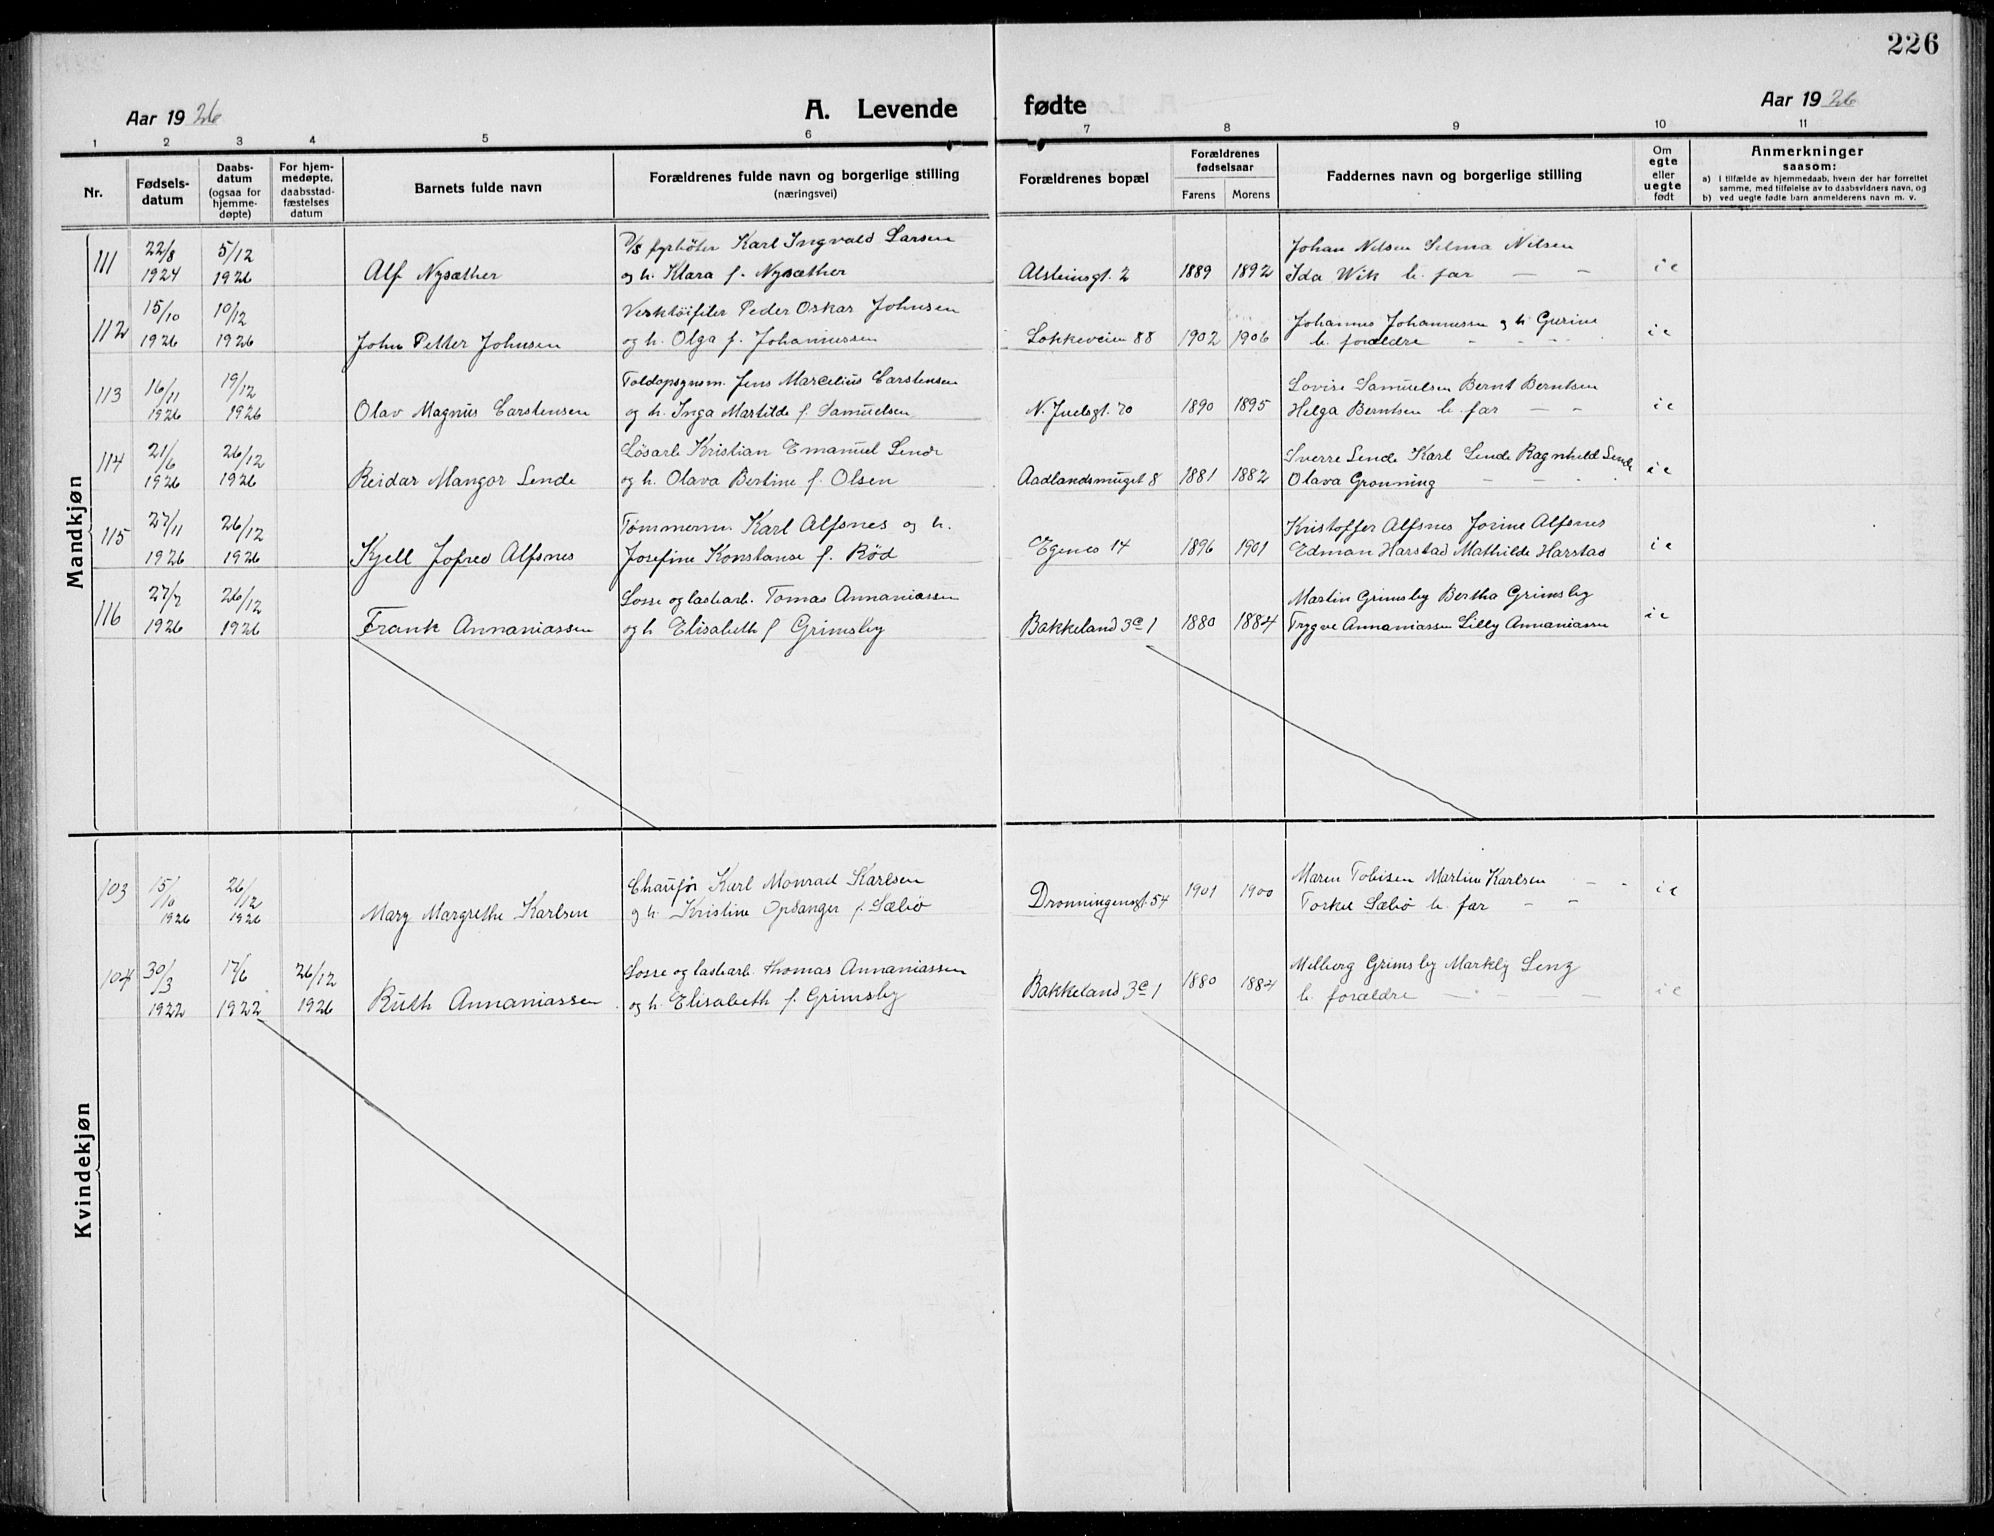 226
Aar 1926
A. Levende
fødte
Aar 1926
1 2 3 4 5 6 7 8 9 10 11
Nr.
Fødsels-
datum
Daabs-
datum
(ogsaa for
hjemme-
døpte)
For hjem-
medøpte,
daabsstad-
fæstelses
datum
Barnets fulde navn
Forældrenes fulde navn og borgerlige stilling
(næringsvei)
Forældrenes bopæl
Forældrenes
fødselsaar
Farens Morens
Faddernes navn og borgerlige stilling
Om
egte
eller
uegte
født
Anmerkninger
saasom:
a) i tilfælde av hjemmedaab, hvem der har forrettet
samme, med tilføielse av to daabsvidners navn, og
b) ved uegte fødte barn anmelderens navn m. v.
Mandkjøn
111 22/8 5/12 fyrbøter Karl Ingvald Larsen Johan Nilsen Selma Nilsen
1924 1926 Alf Nysæther og h. Klara f. Nysæther Alsteinsgt. 2 1889 1892 Ida Wik b. far — — i e
112 15/10 10/12 Verktöifiler Peder Oskar Johnsen Johannes Johannessen og h Gurine
1926 1926 John Petter Johnsen og h. Olga f. Johannessen Lokkeveien 88 1902 1906 b. forældre - - - - i e
113 16/11 19/12 Toldopsynsm. Jens Marcelius Carstensen Lovise Samuelsen Bernt Berntsen
1926 1926 Olav Magnus Carstensen og h. Inga Martilde f. Samuelsen N. Juelsgt. 70 1890 1895 Helga Berntsen b. far — - i e
114 21/6 26/12 Løsarb Kristian Emanuel Sende Sverre Sende Karl Sende Ragnhild Sende
1926 1926 Reidar Mangor Sende og h. Olava Bertine f. Olsen Aadlandsmuget 8 1881 1882 Olava Gronning - - - - i e
115 27/11 26/12 Tømmerm. Karl Alfsnes og h. Kristoffer Alfsnes Jorine Alfsnes
1926 1926 Kjell Jofred Alfsnes Josefine Konstanse f. Rød Egenes 14 1896 1901 Edman Harstad Mathilde Harstad i e
116 27/7 26/12 Losse og lastearb. Tomas Annaniassen Martin Grimsby Bertha Grimsby
1926 1926 Frank Annaniassen og h Elisabeth f Grimsby Bakkeland 3c 1 1880 1884 Trygve Annaniassen Lilly Annaniassen i e
Kvindekjøn
103 15/10 26/12 Chaufør Karl Monrad Karlsen Maren Tobisen Martine Karlsen - -
1926 1926 Mary Margrethe Karlsen og h. Kristine Opsanger f. Sæbø Dronningensgt. 54 1901 1900 Torkel Sæbø b. far - - i e
104 30/3 17/6 26/12 Losse og lastearb. Thomas Annaniassen Milberg Grimsby Lenz
1922 1922 1926 Ruth Annaniassen og h. Elisabeth f. Grimsby Bakkeland 3c 1 1880 1884 b. forældre — - — — i e